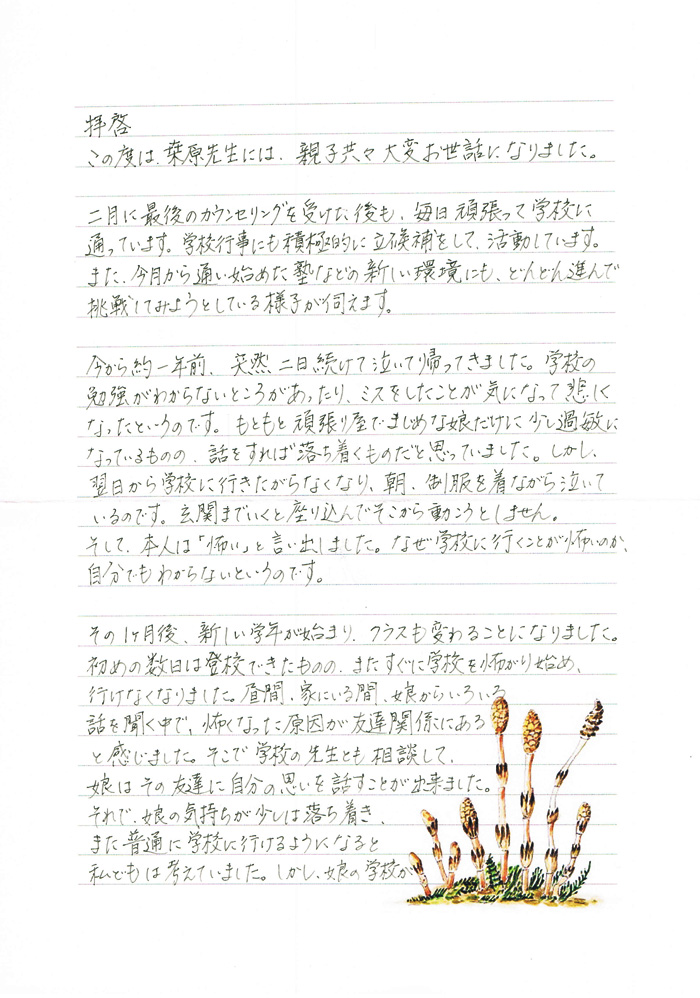 拝啓
この度は、桒原先生には、親子共々大変お世話になりました。
二月に最後のカウンセリングを受けた後も、毎日頑張って学校に
通っています。学校行事にも積極的に立候補をして、活動しています。
また、今月から通い始めた塾などの新しい環境にも、どんどん進んで
挑戦してみようとしている様子が伺えます。
今から約一年前、突然二日続けて泣いて帰ってきました。学校の
勉強がわからないところがあったり、ミスをしたことが気になって悲しく
なったというのです。もともと頑張り屋でまじめな娘だけに少し過敏に
なっているものの、話をすれば落ち着くものだと思っていました。しかし、
翌日から学校に行きたがらなくなり、朝、制服を着ながら泣いて
いるのです。玄関までいくと座り込んでそこから動こうとしません。
そして、本人は「怖い」と言い出しました。なぜ学校に行くことが怖いのか、
自分でもわからないというのです。
その1ヶ月後、新しい学年が始まり、クラスも変わることになりました。
初めの数日は登校できたものの、またすぐに学校を怖がり始め、
行けなくなりました。昼間、家にいる間、娘からいろいろ
話を聞く中で、怖くなった原因が友達関係にある
と感じました。そこで学校の先生とも相談して、
娘はその友達に自分の思いを話すことが出来ました。
それで、娘の気持ちが少しは落ち着き、
また普通に学校に行けるようになると
私どもは考えていました。しかし、娘の学校が